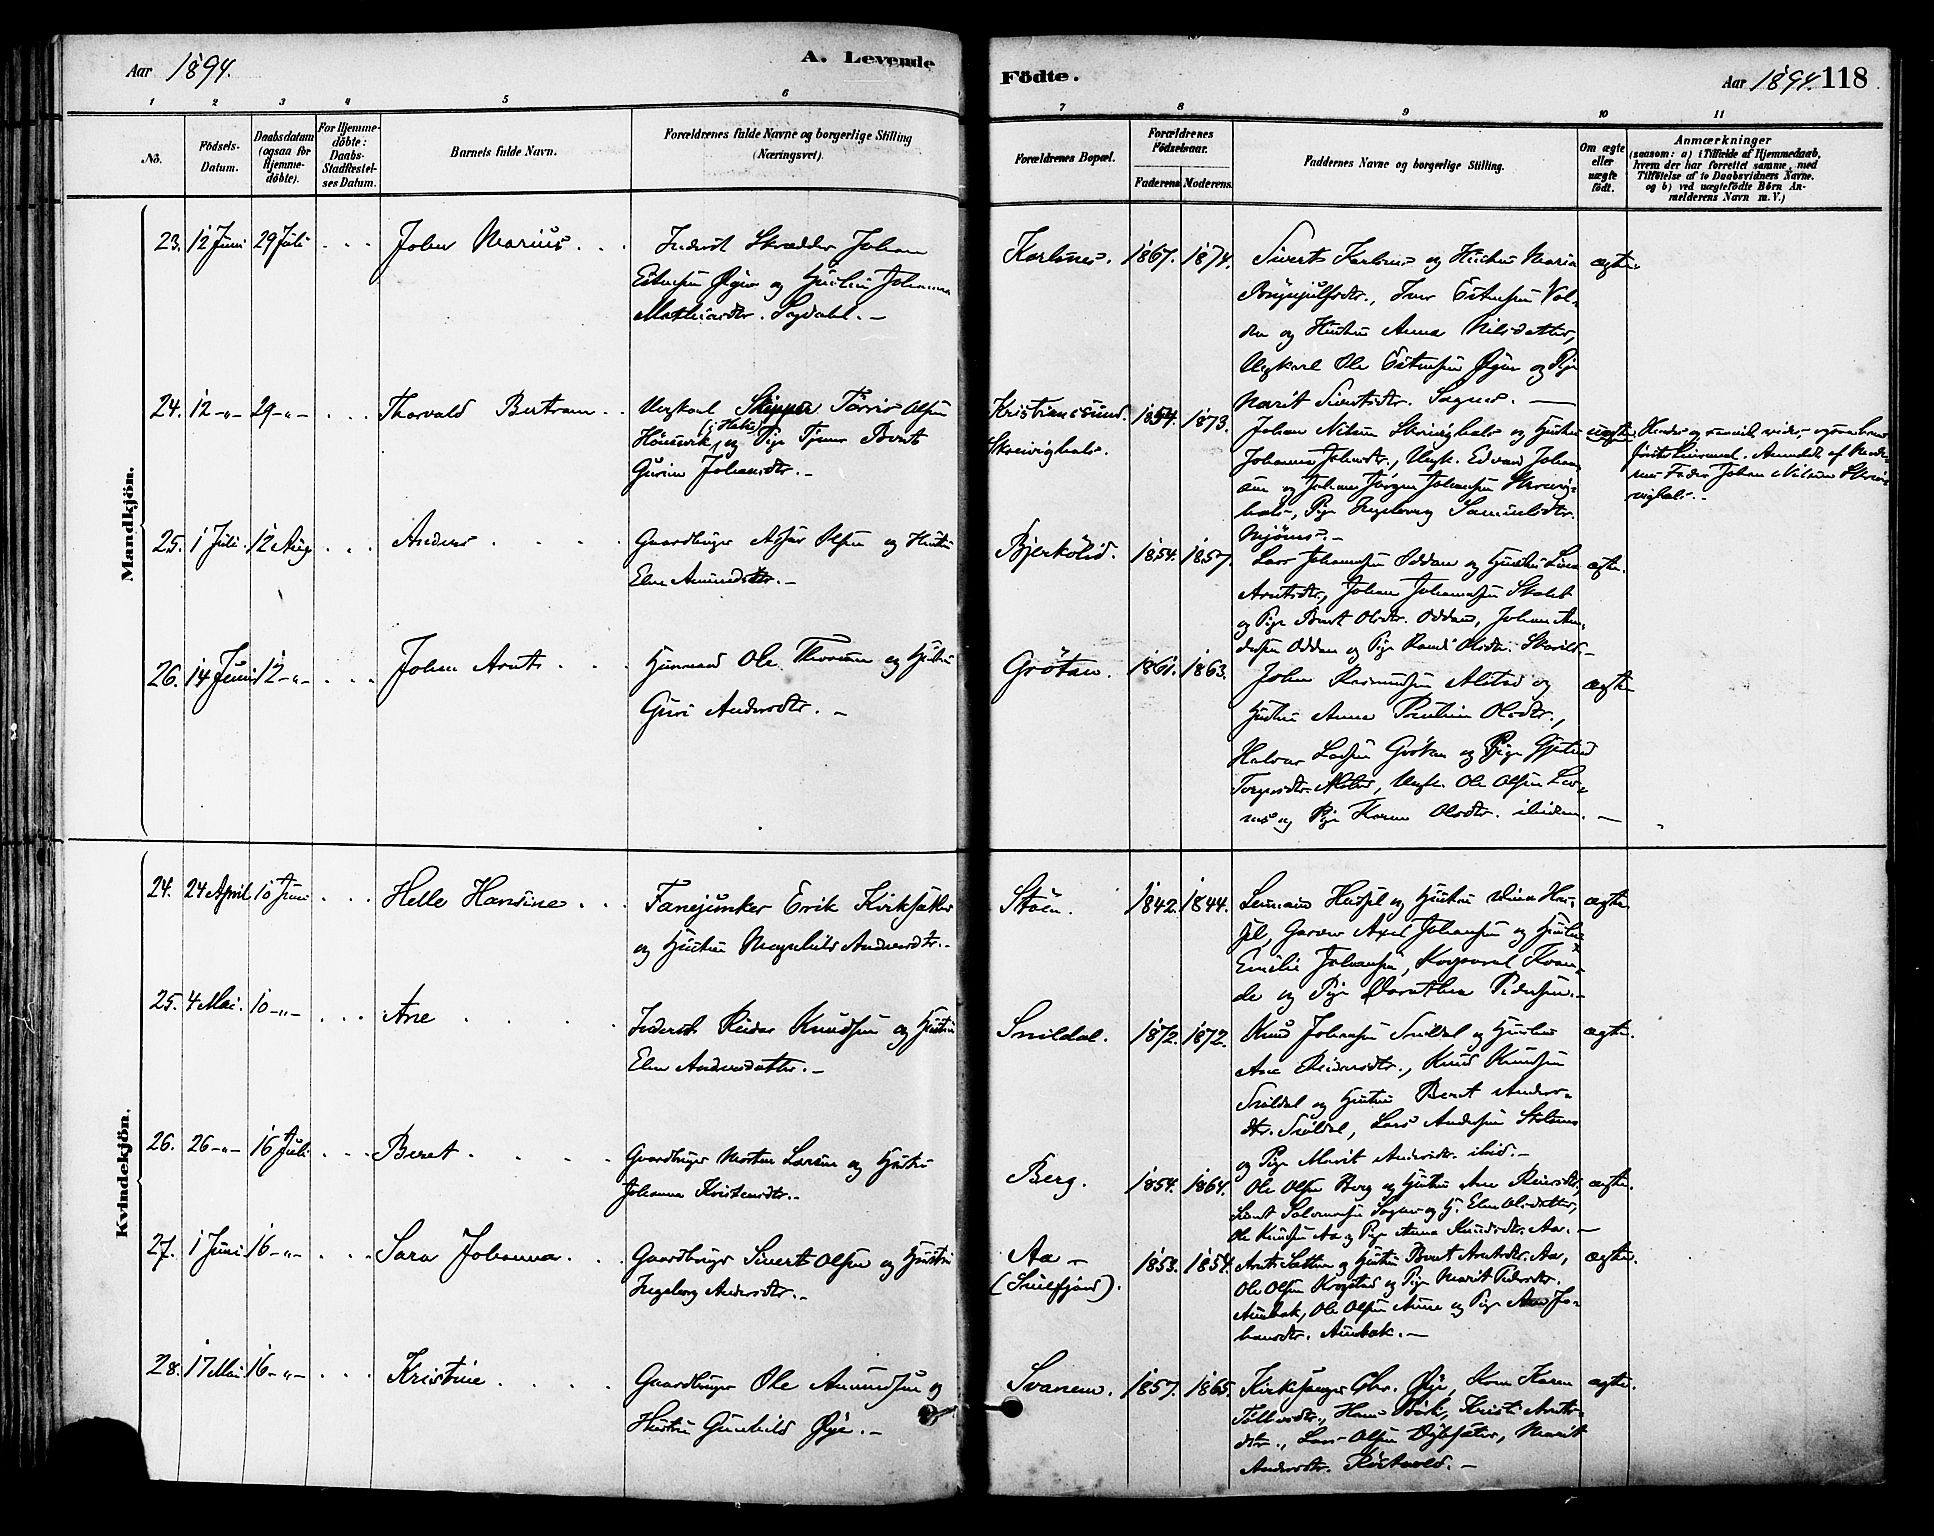 Aar 1894.
A. Levende
Födte.
Aar 1894. 118
1 2 3 4 5 6 7 8 9 10 11
No.
Födsels-Datum.
Daabsdatum (ogsaa for Hjemme-döbte).
For Hjemme-döbte: Daabs-Stadfæstel-ses Datum.
Barnets fulde Navn.
Forældrenes fulde Navne og borgerlige Stilling (Næringsvei).
Forældrenes Bopæl.
Forældrenes Födselsaar.
Faderens Moderens.
Faddernes Navne og borgerlige Stilling.
Om ægte eller uægte födt.
Anmærkninger
(saasom: a) i Tilfælde af Hjemmedaab,
hvem der har forrettet samme, med
Tilföielse af to Daabsvidners Navne.
og b) ved uægtefödte Börn An-
melderens Navn m. V.)
Mandkjön.
23. 12 Juni 29 Juli Johan Marius
Inderst Skrædder Johan
Estensen Øigen og Hustru Johanna
Mathiasdtr. Sogdahl. –
1867. 1874.
Sivert og Hustru Maria
Brynjulfsdtr., Iver Estensen Vol-
den og Hustru Anna Nilsdatter,
Ungkarl Ole Estensen Øigen og Pige
Marit Sivertsdtr. Sognes. –
ægte.
24. 12 -„- 29 -„- Thorvald Bertram
Ungkarl Skipper Törris Olsen
og Pige Tjener Berit
Gurine Johansdtr. –
Kristianssund.
Skreivighals.
1854. 1873.
Johan Nilsen Skreivighals og Hustru
Johanna Johnsdtr., Ungk. Edvard Johan-
sen og Johan Jörgen Johansen Skreivig-
hals, Pige Ingeborg Samuelsdtr.
Mjönes. –
uægte.
Fader Johan Nilsen Skrei-
vighals. –
25. 1 Juli 12 Aug Anders
Gaardbruger Olsen og Hustru
Elen Amundsdtr. –
Bjerkölid. 1854. 1857.
Lars Johannesen Oddan og Hustru Lina
Arntsdtr., Johan Johannesen
og Pige Berit Olsdtr. Oddan, Johan An-
dersen Oddan og Pige Randi Olsdtr.
ægte.
26. 14 Juni 12 -„- Johan Arnt
Husmand Ole Thoresen og Hustru
Guri Andersdtr. –
Grötan. 1861. 1863.
John Rasmussen Alstad og
Hustru Anna Pauline Olsdtr.,
Halvor Larsen Grötan og Pige Gjertrud
Torgersdtr. Alstad, Ungk. Ole Olsen Ler-
nes og Pige Karen Olsdtr. ibidem. –
ægte
Kvindekjön.
24. 24 April 10 Juni Helle Hansine
Fanejunker Erik Kirksæter
og Hustru Magnhild Andersdtr. –
Stöen. 1842. 1844.
og Hustru
Garver Axel Johansen og Hustru
Emilie Johansen,
og Pige Dorothea Pedersen. –
ægte
25. 4 Mai 10 -„- Ane
Inderst Reidar Knudsen og Hustru
Elen Andersdatter. –
Snildal. 1872. 1872.
Knud Johansen Snildal og Hustru
Ane Reidarsdtr., Knud Knudsen
Snildal og Hustru Beret Anders-
dtr. Snildal, Lars Andersen
og Pige Marit Andersdtr. ibid. –
ægte.
26. 26 -„- 16 Juli Beret
Gaardbruger Morten Larsen og Hustru
Johanna Kristensdtr. –
Berg. 1854. 1864.
Ole Olsen Berg og Hustru Ane Reiersdtr.,
Salomonsen Sagen og H. Elen Olsdatter,
Ole Knudsen Aa og Pige Anna Knudsdtr. Aa. –
ægte.
27. 1 Juni 16 -„- Sara Johanna
Gaardbruger Sivert Olsen og Hustru
Ingeborg Andersdtr. –
Aa –
(Snilfjord).
1853. 1854.
Arnt Sætten og Hustru Beret Arntsdtr. Aa,
Ole Olsen Krogstad og Pige Marit Pedersdtr.
Aunbak, Ole Olsen Aune og Pige Ane Jo-
hansdtr. Aunbak. –
ægte.
28. 17 Mai 16 -„- Kristine
Gaardbruger Ole Amundsen og
Hustru Gunhild Øye. –
Svanem. 1857. 1865.
Kirkesanger Chr. Øye, Kone Karen
Tollevsdtr., Hans Börk, Kristi Arnts-
dtr., Lars Olsen Dybsæter, Marit
Andersdtr. –
ægte.